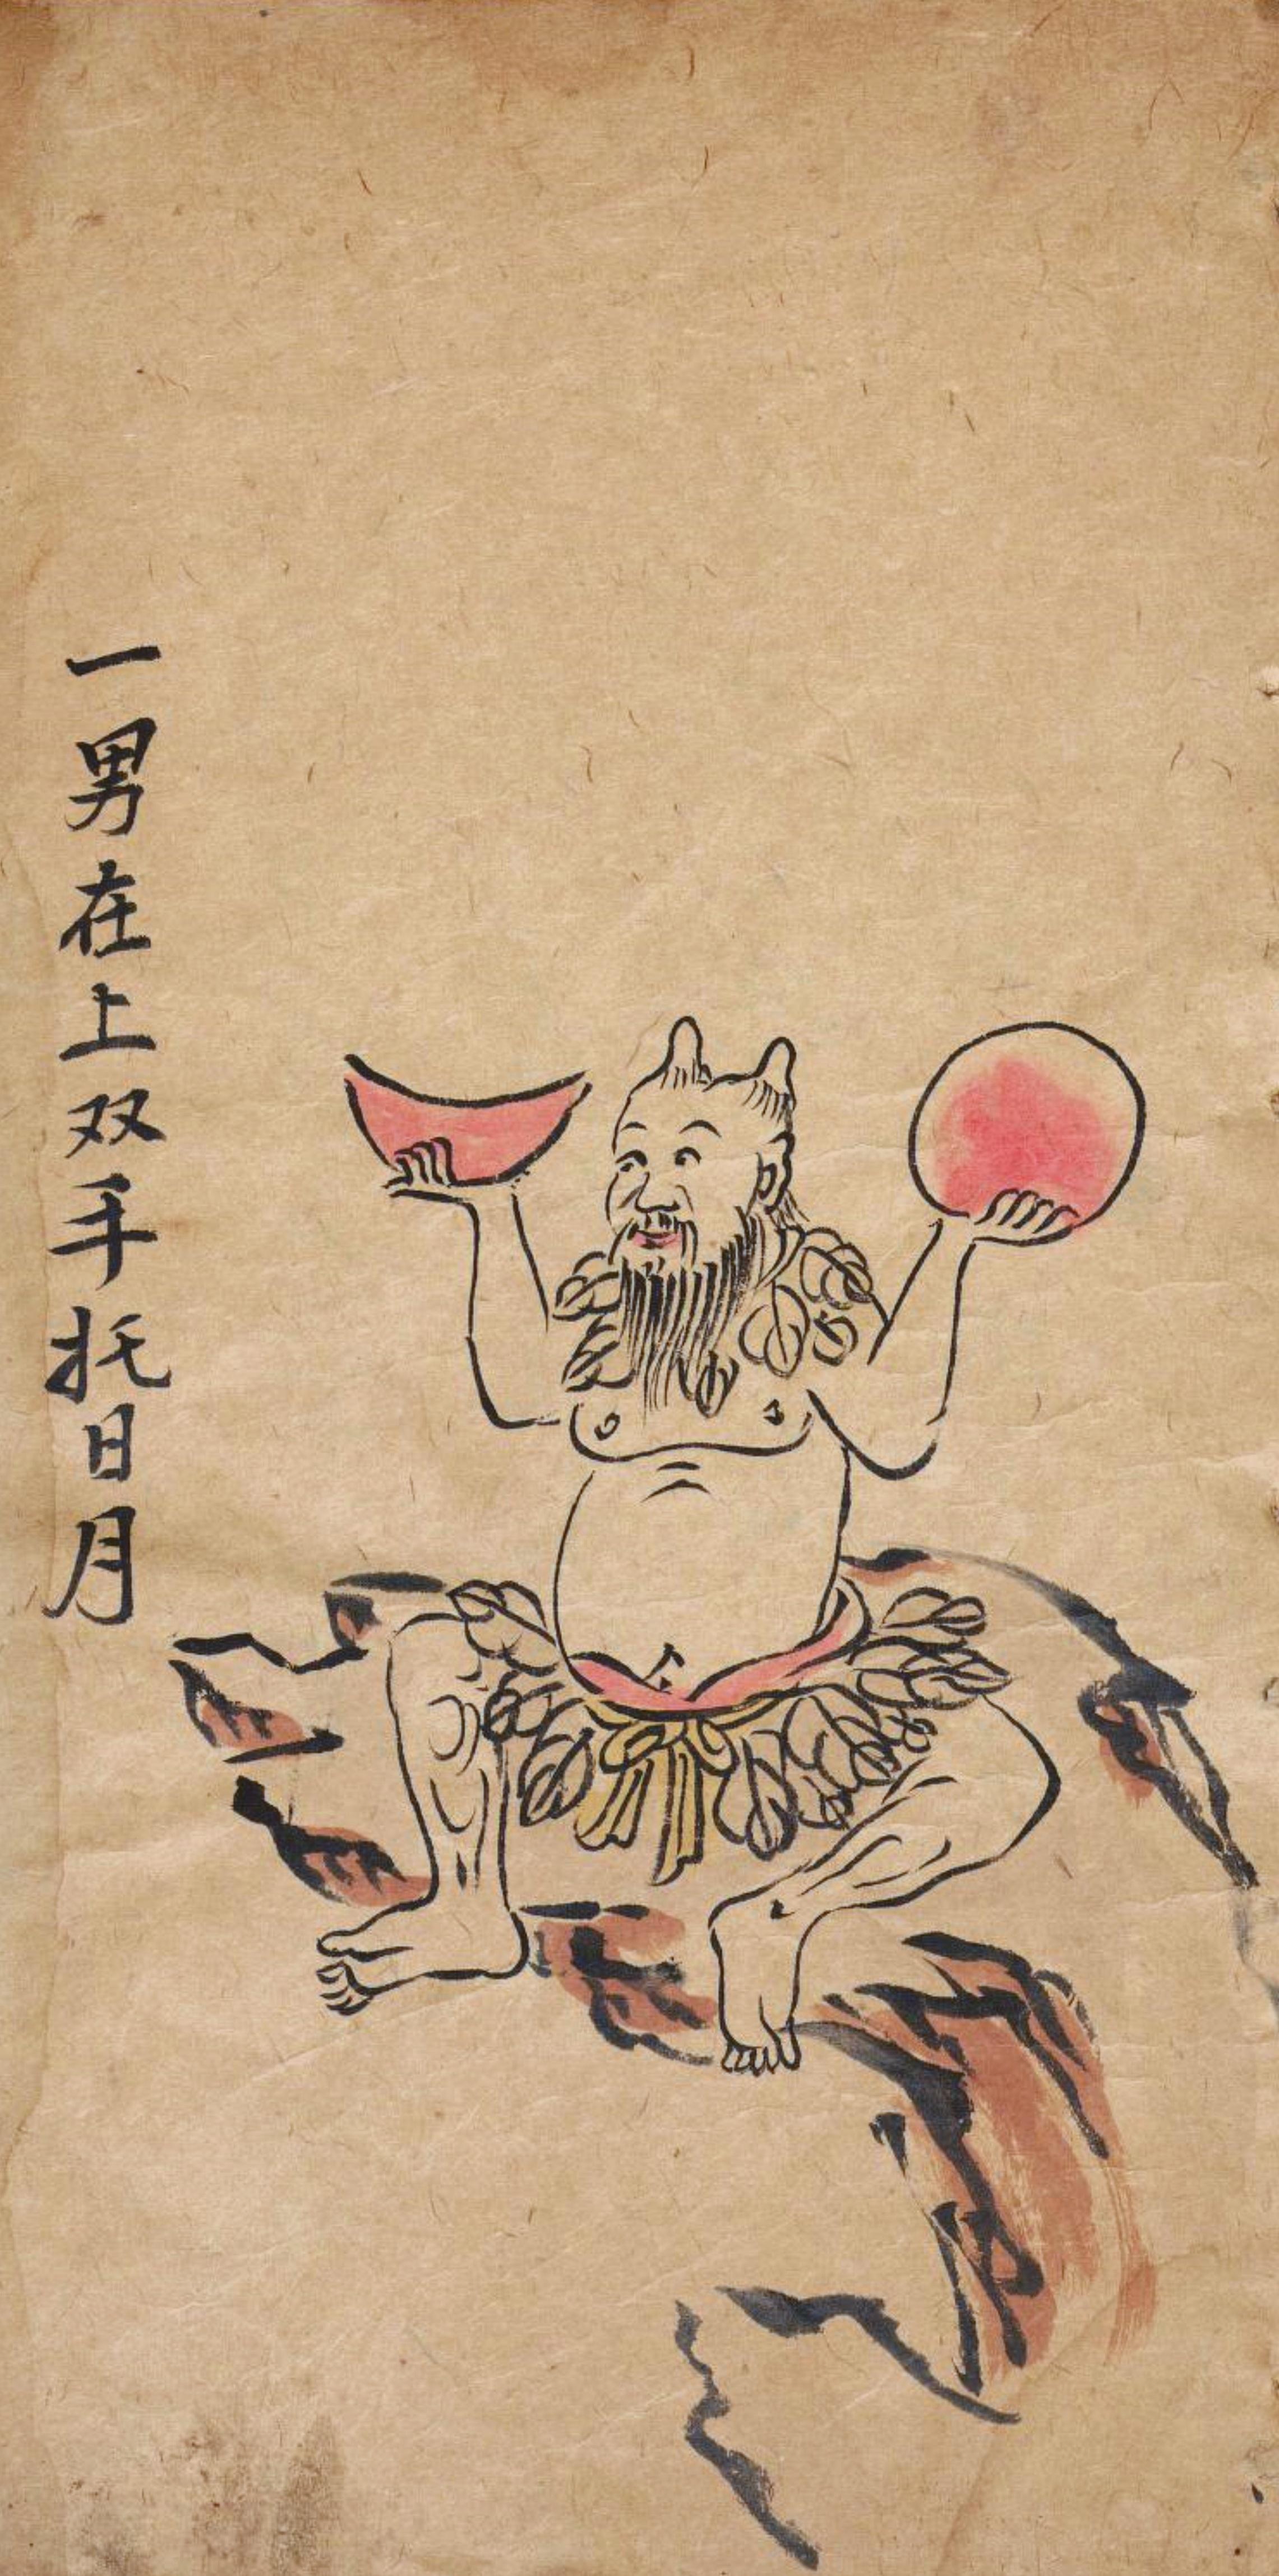 一男在上双手托日月